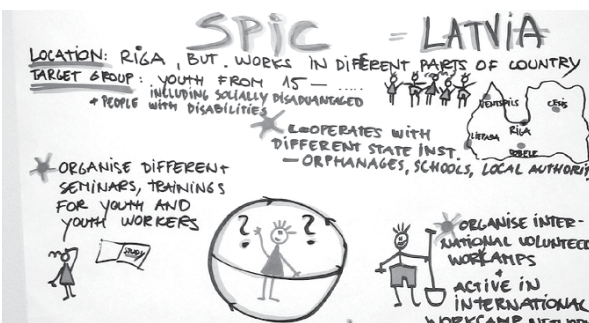 SPIC = LATVIA
LOCATION: RĪGA, BUT WORKS IN DIFFERENT PARTS OF COUNTRY
TARGET GROUP: YOUTH FROM 15 — .....
INCLUDING SOCIALLY DISADVANTAGED
+ PEOPLE WITH DISABILITIES
VENTSPILS
CĒSIS
LIEPAJA
RĪGA
COOPERATES WITH
DIFFERENT STATE INST.
— ORPHANAGES, SCHOOLS, LOCAL AUTHORIT
ORGANISE DIFFERENT
SEMINARS, TRAININGS
FOR YOUTH AND
YOUTH WORKERS
STUDY
? ?
ORGANISE INTER-
NATIONAL VOLUNTEER
WORKCAMPS
+
ACTIVE IN
INTERNATIONAL
WORKCAMP NETWORK